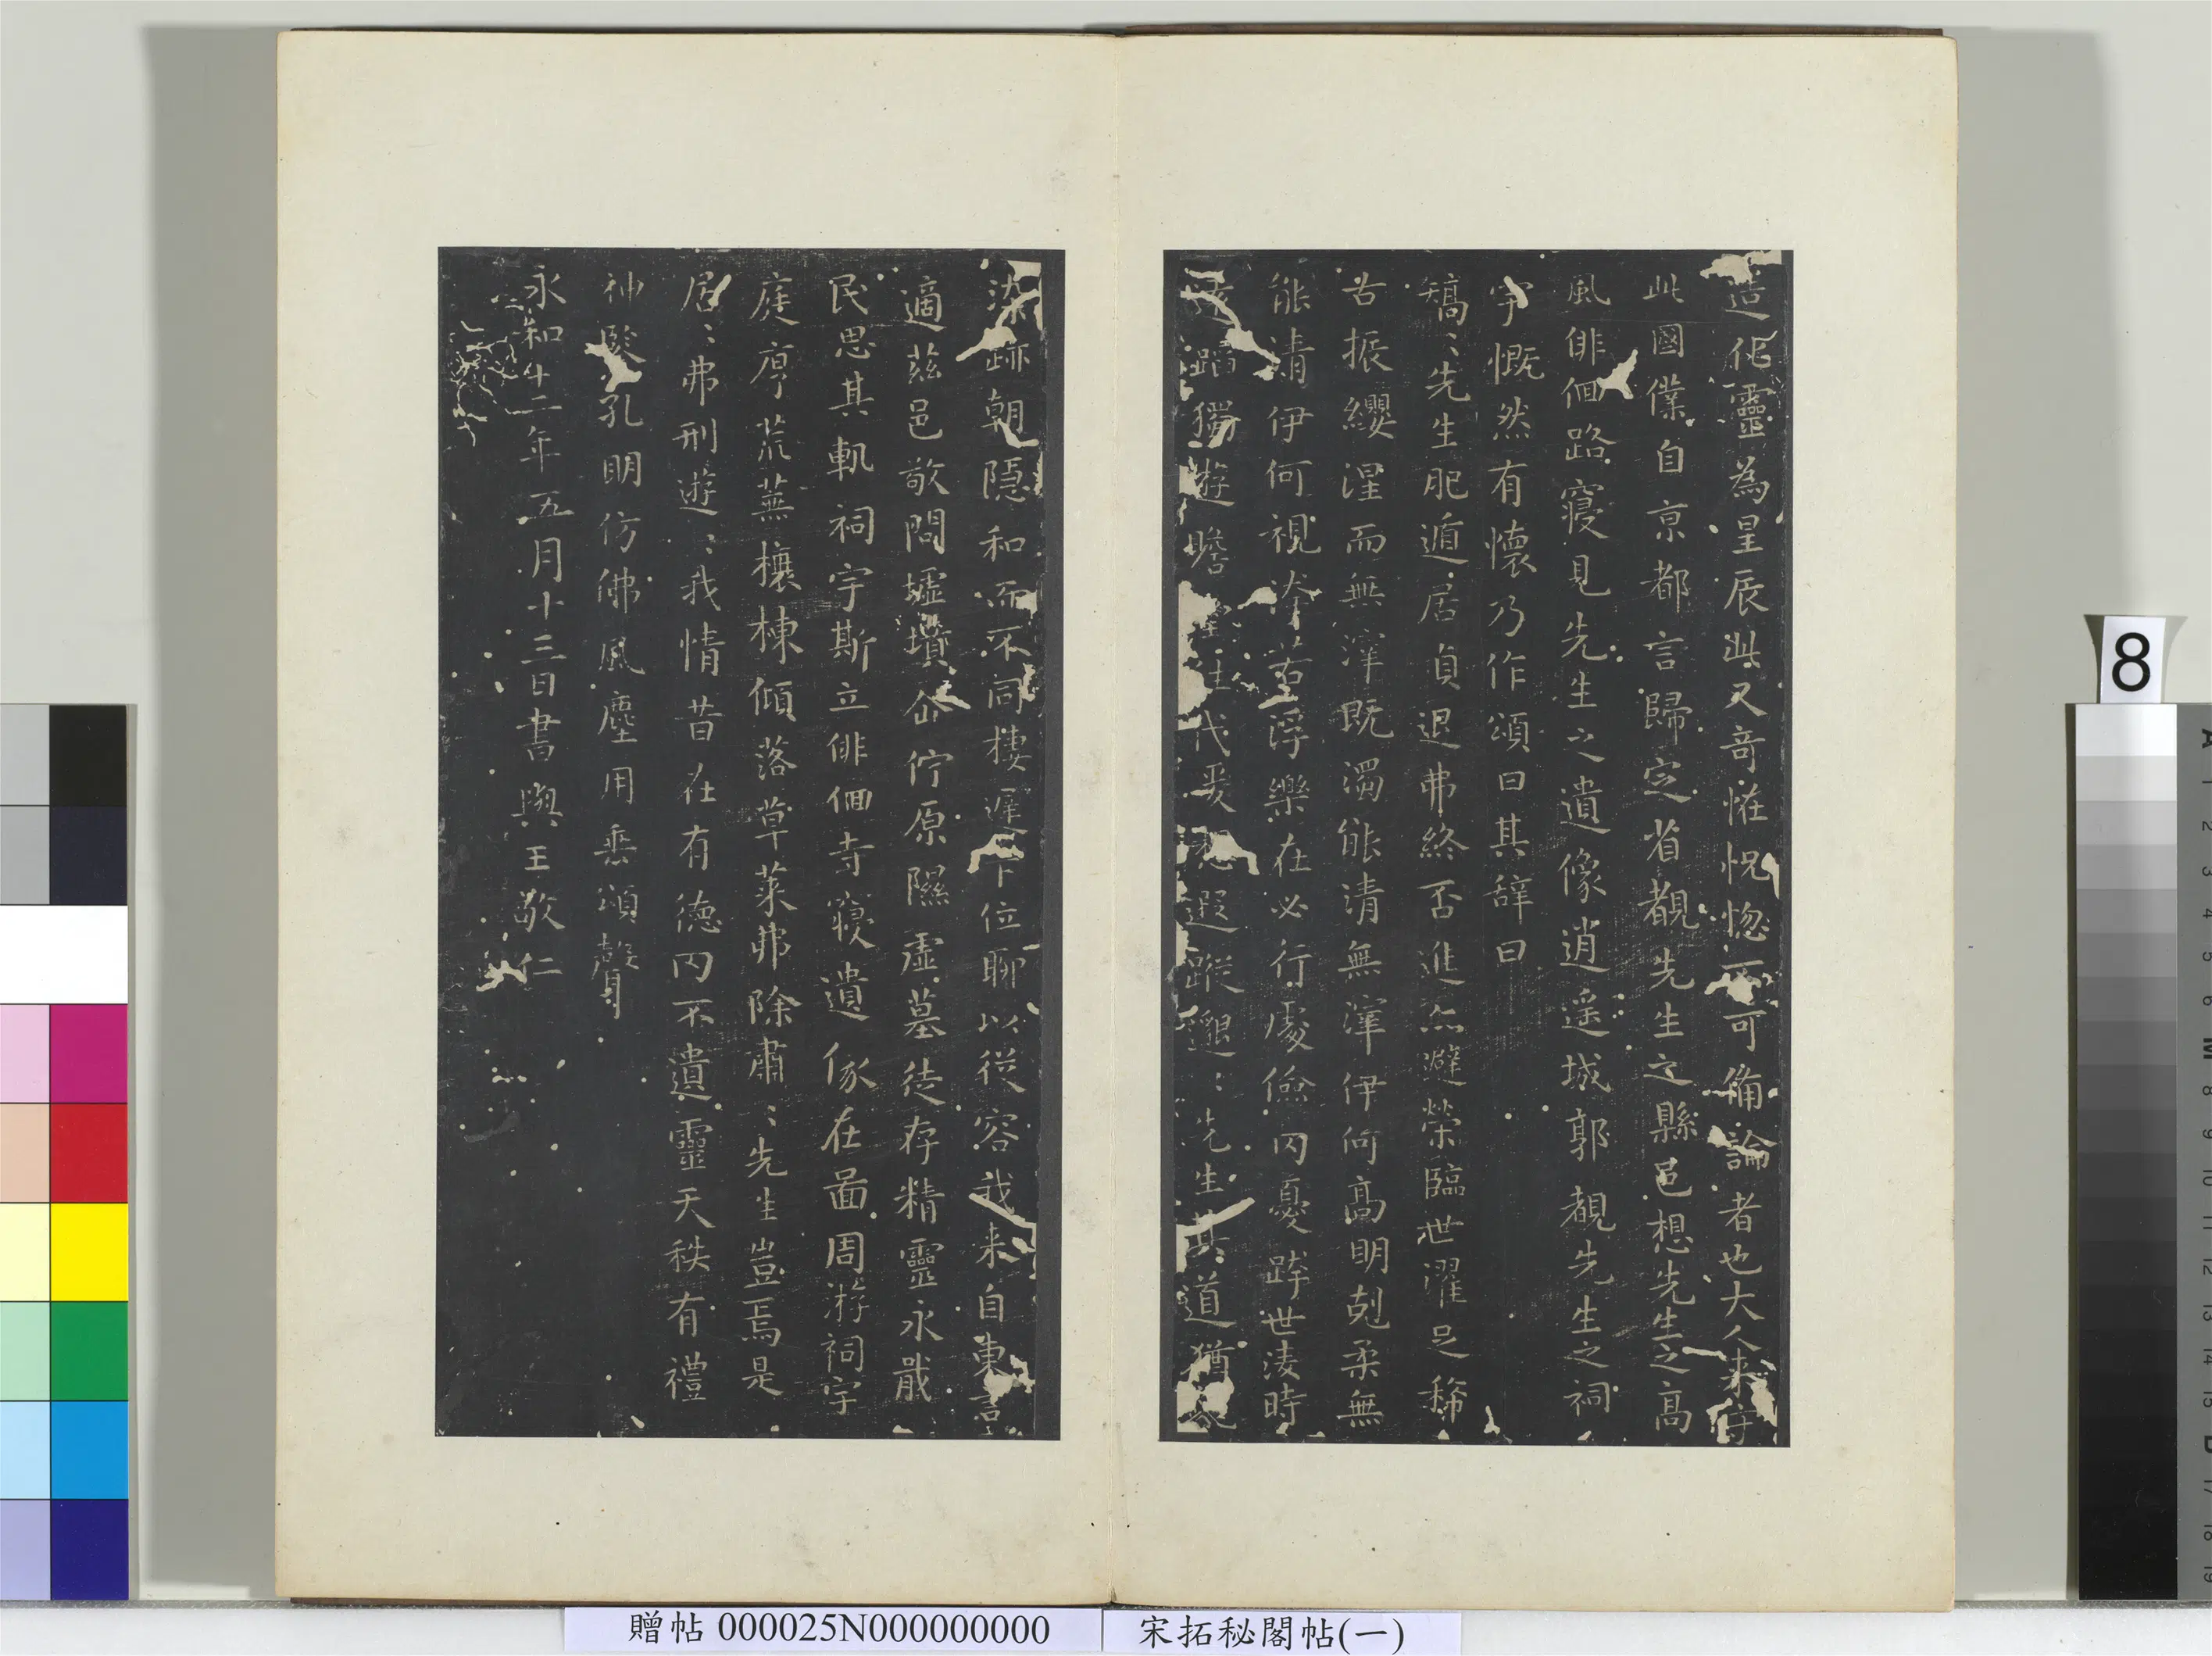 造化靈為星辰此又奇怪怳惚不可備論者也大人來守
此國僕自京都言歸定省覩先生之縣邑想先生之高
風俳佪路寢見先生之遺像逍遥城郭覩先生之祠
宇慨然有懷乃作頌曰其辭曰
矯〻先生肥遁居貞退弗終否進亦避榮臨世濯足稀
古振纓涅而無滓既濁能清無滓伊何高明剋柔無
能清伊何視汙若浮樂在必行處儉罔憂跨世淩時
遠蹈獨遊瞻望往代爰想遐蹤邈〻先生其道猶龍
染跡朝隱和而不同棲遲下位聊以從容我来自東言
適兹邑敬問墟墳企佇原隰虛墓徒存精靈永戢
民思其軌祠宇斯立俳佪寺寢遺像在啚周游祠宇
庭序荒蕪榱棟傾落草萊弗除肅〻先生豈焉是
居〻弗刑遊〻我情昔在有德罔不遺靈天秩有禮
神監孔明仿佛風塵用垂頌聲
永和十二年五月十三日書與王敬仁
贈帖 000025N000000000
宋拓秘閣帖(一)
8